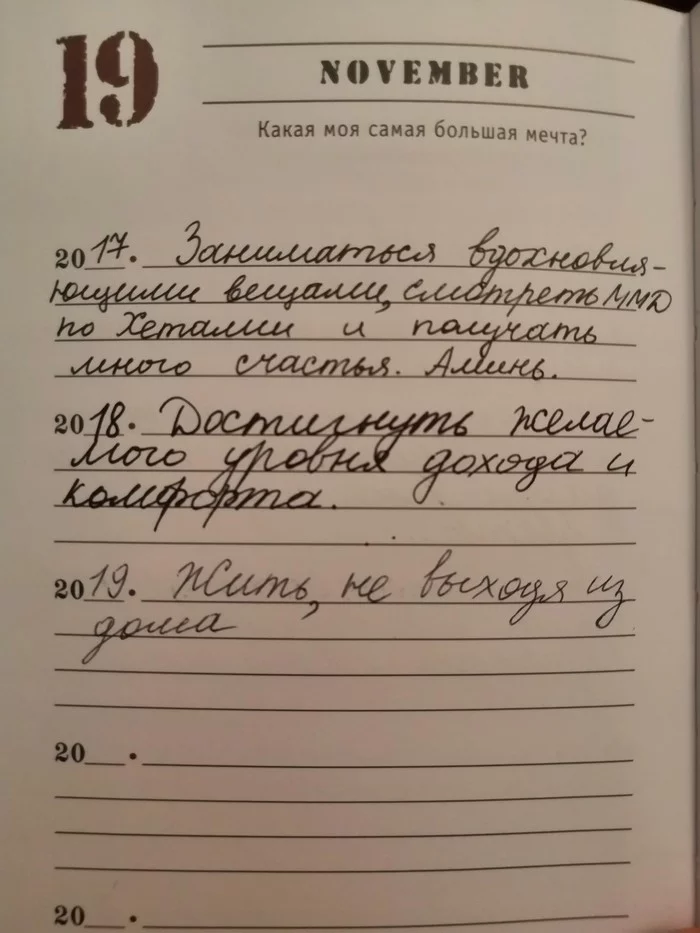 19
NOVEMBER
Какая моя самая большая мечта?
2017. Заниматься вдохновля-
ющими вещами, смотреть ММД
по Хеталии и получать
много счастья. Аминь.
2018. Достигнуть желае-
мого уровня дохода и
комфорта.
2019. Жить, не выходя из
дома
20__.
20__.